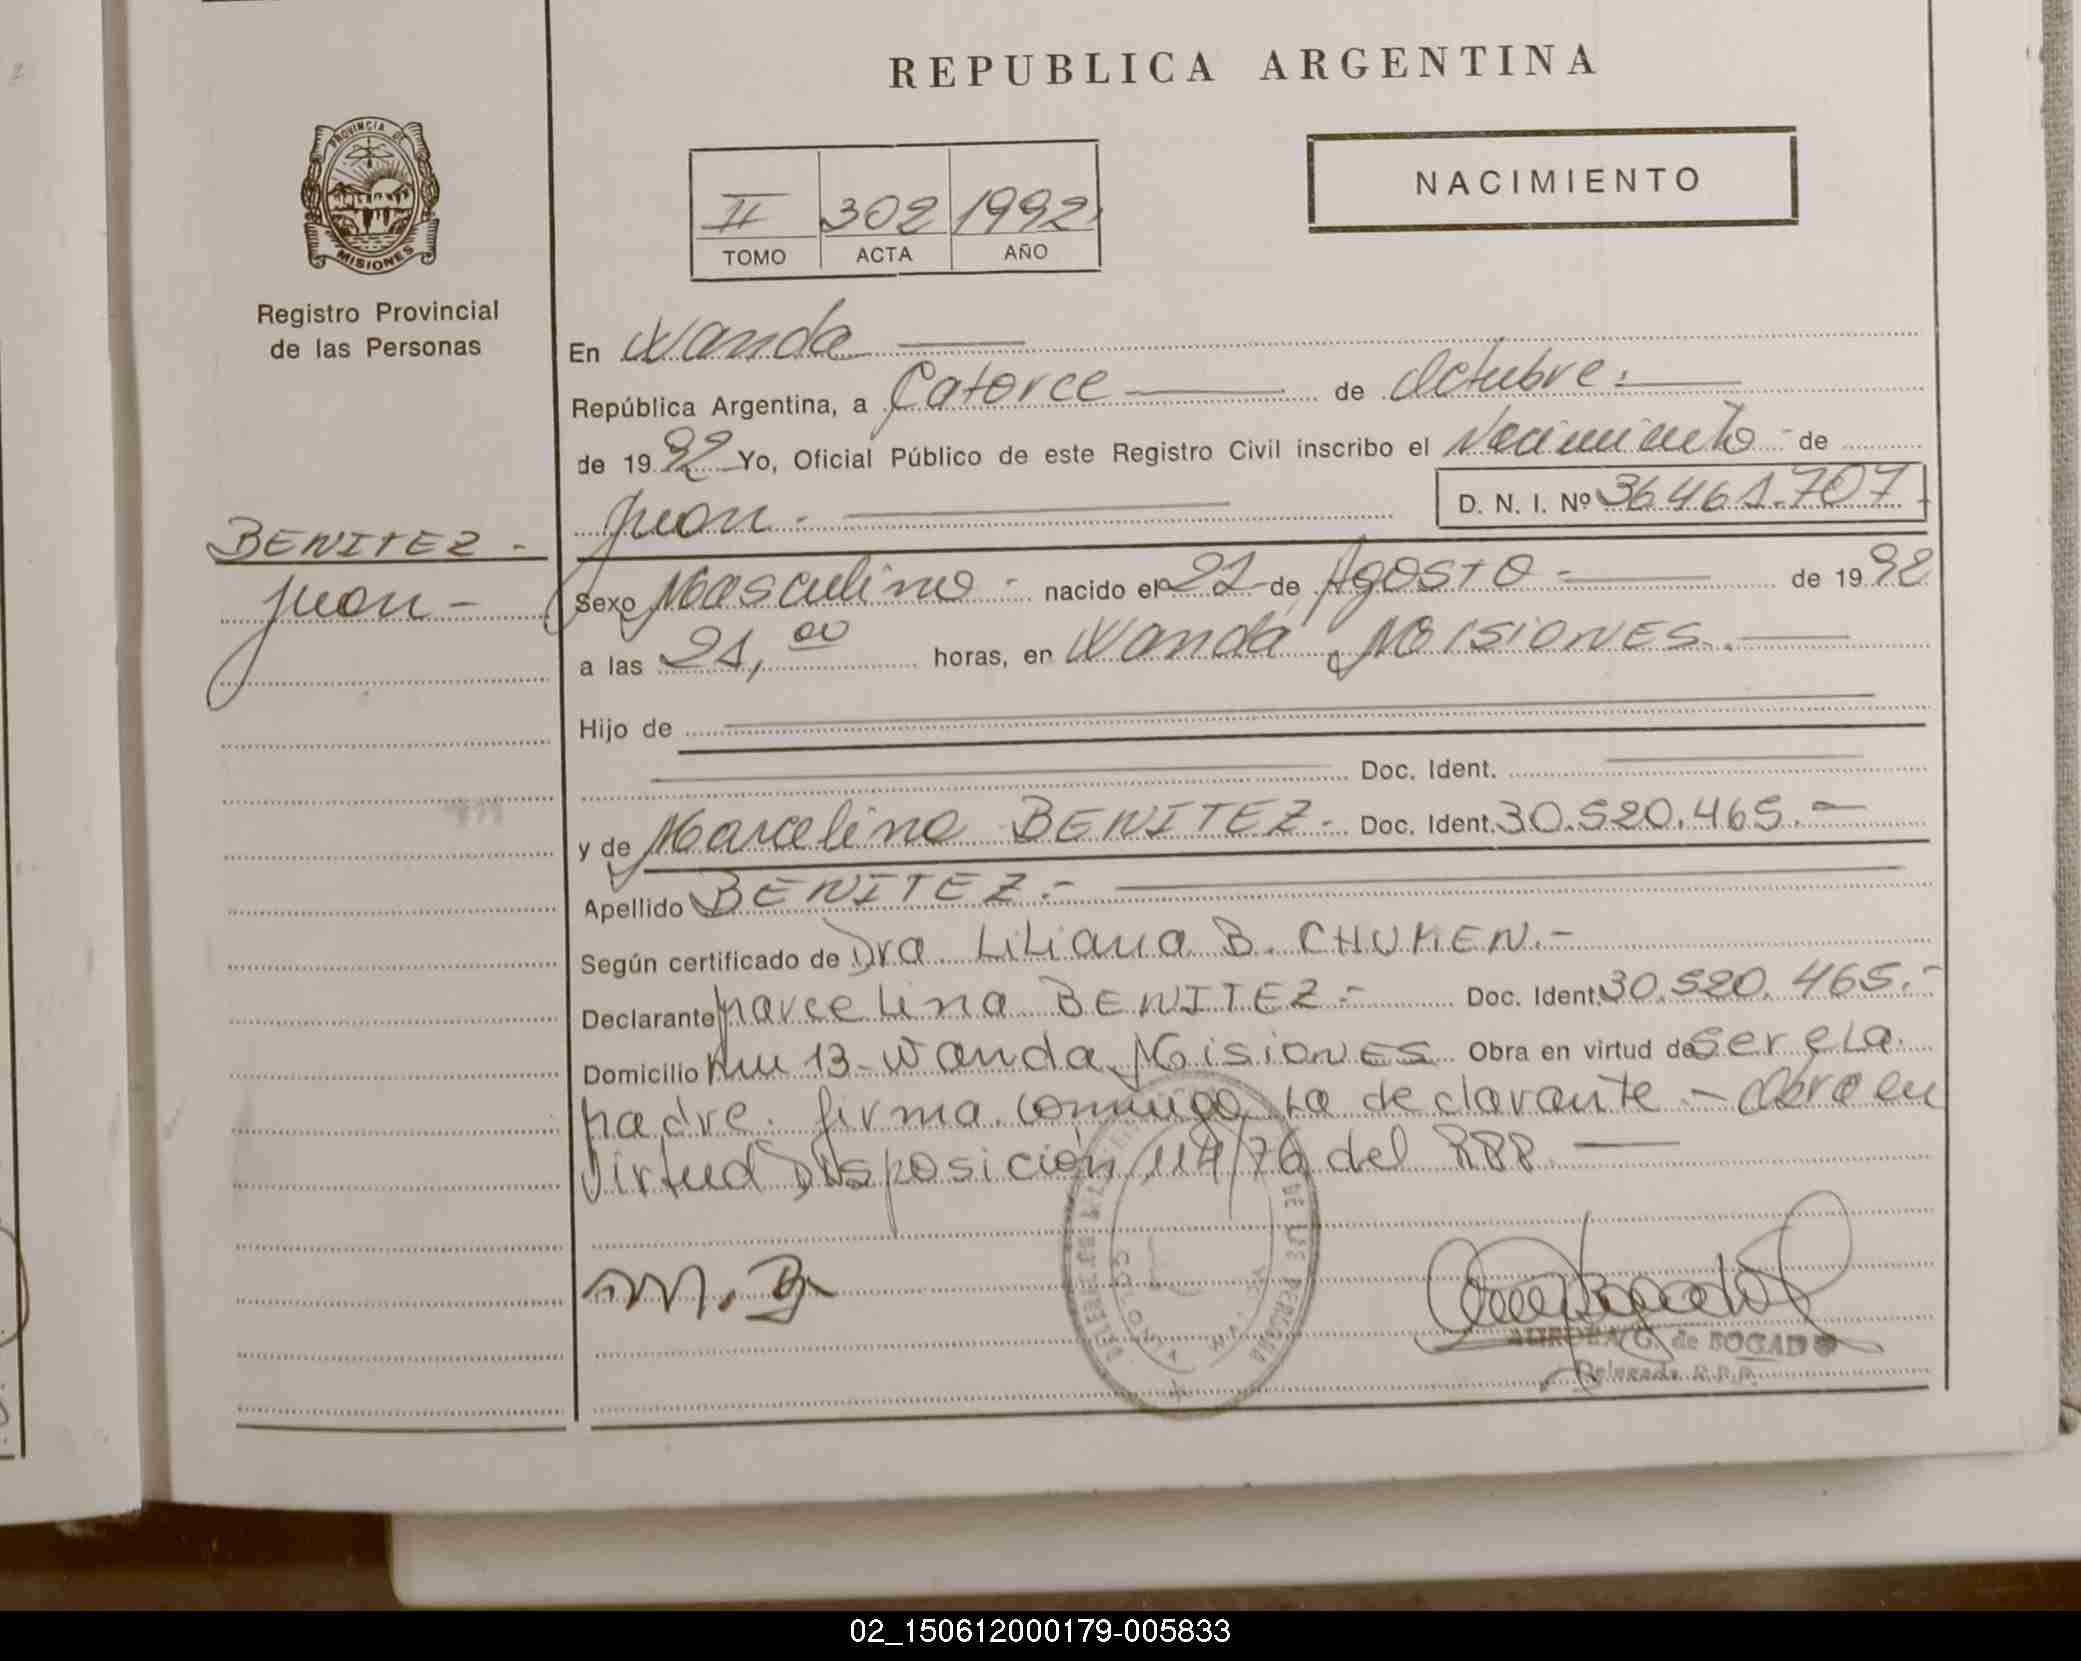 REPUBLICA ARGENTINA
PROVINCIA DE
MISIONES
Registro Provincial
de las Personas
II 302 1992
TOMO ACTA AÑO
NACIMIENTO
En Wanda
República Argentina, a Catorce de Octubre.
de 1992 Yo, Oficial Público de este Registro Civil inscribo el Nacimiento - de
Juan - D. N. I. Nº 36461.707
BENITEZ -
Juan -
Sexo Masculino - nacido el 21 de Agosto - de 1992
a las 21,00 horas, en Wanda Misiones.
Hijo de
Doc. Ident.
y de Marcelina BENITEZ - Doc. Ident. 30.520.465.-
Apellido BENITEZ.-
Según certificado de Dra. Liliana B. CHUMEN.-
Declarante Marcelina BENITEZ.- Doc. Ident. 30.520.465.-
Domicilio km 13 - Wanda Misiones Obra en virtud de ser ela
madre. firma conmigo la declarante - Obra en
virtud Disposición 114/76 del RPP.
M. B.
DE LAS PERSONAS
G. de BOGADO
Delegada R.P.P.
02_150612000179-005833